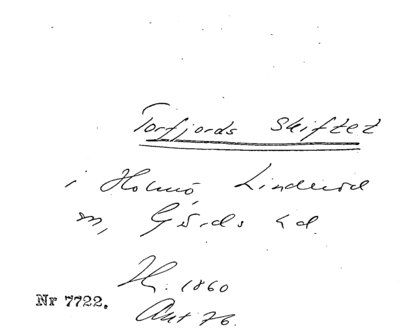 Torfjords Skiftet
i Holmö, Linderöd
m, Gärds hd.
H. 1860
Akt 76.
Nr 7722.